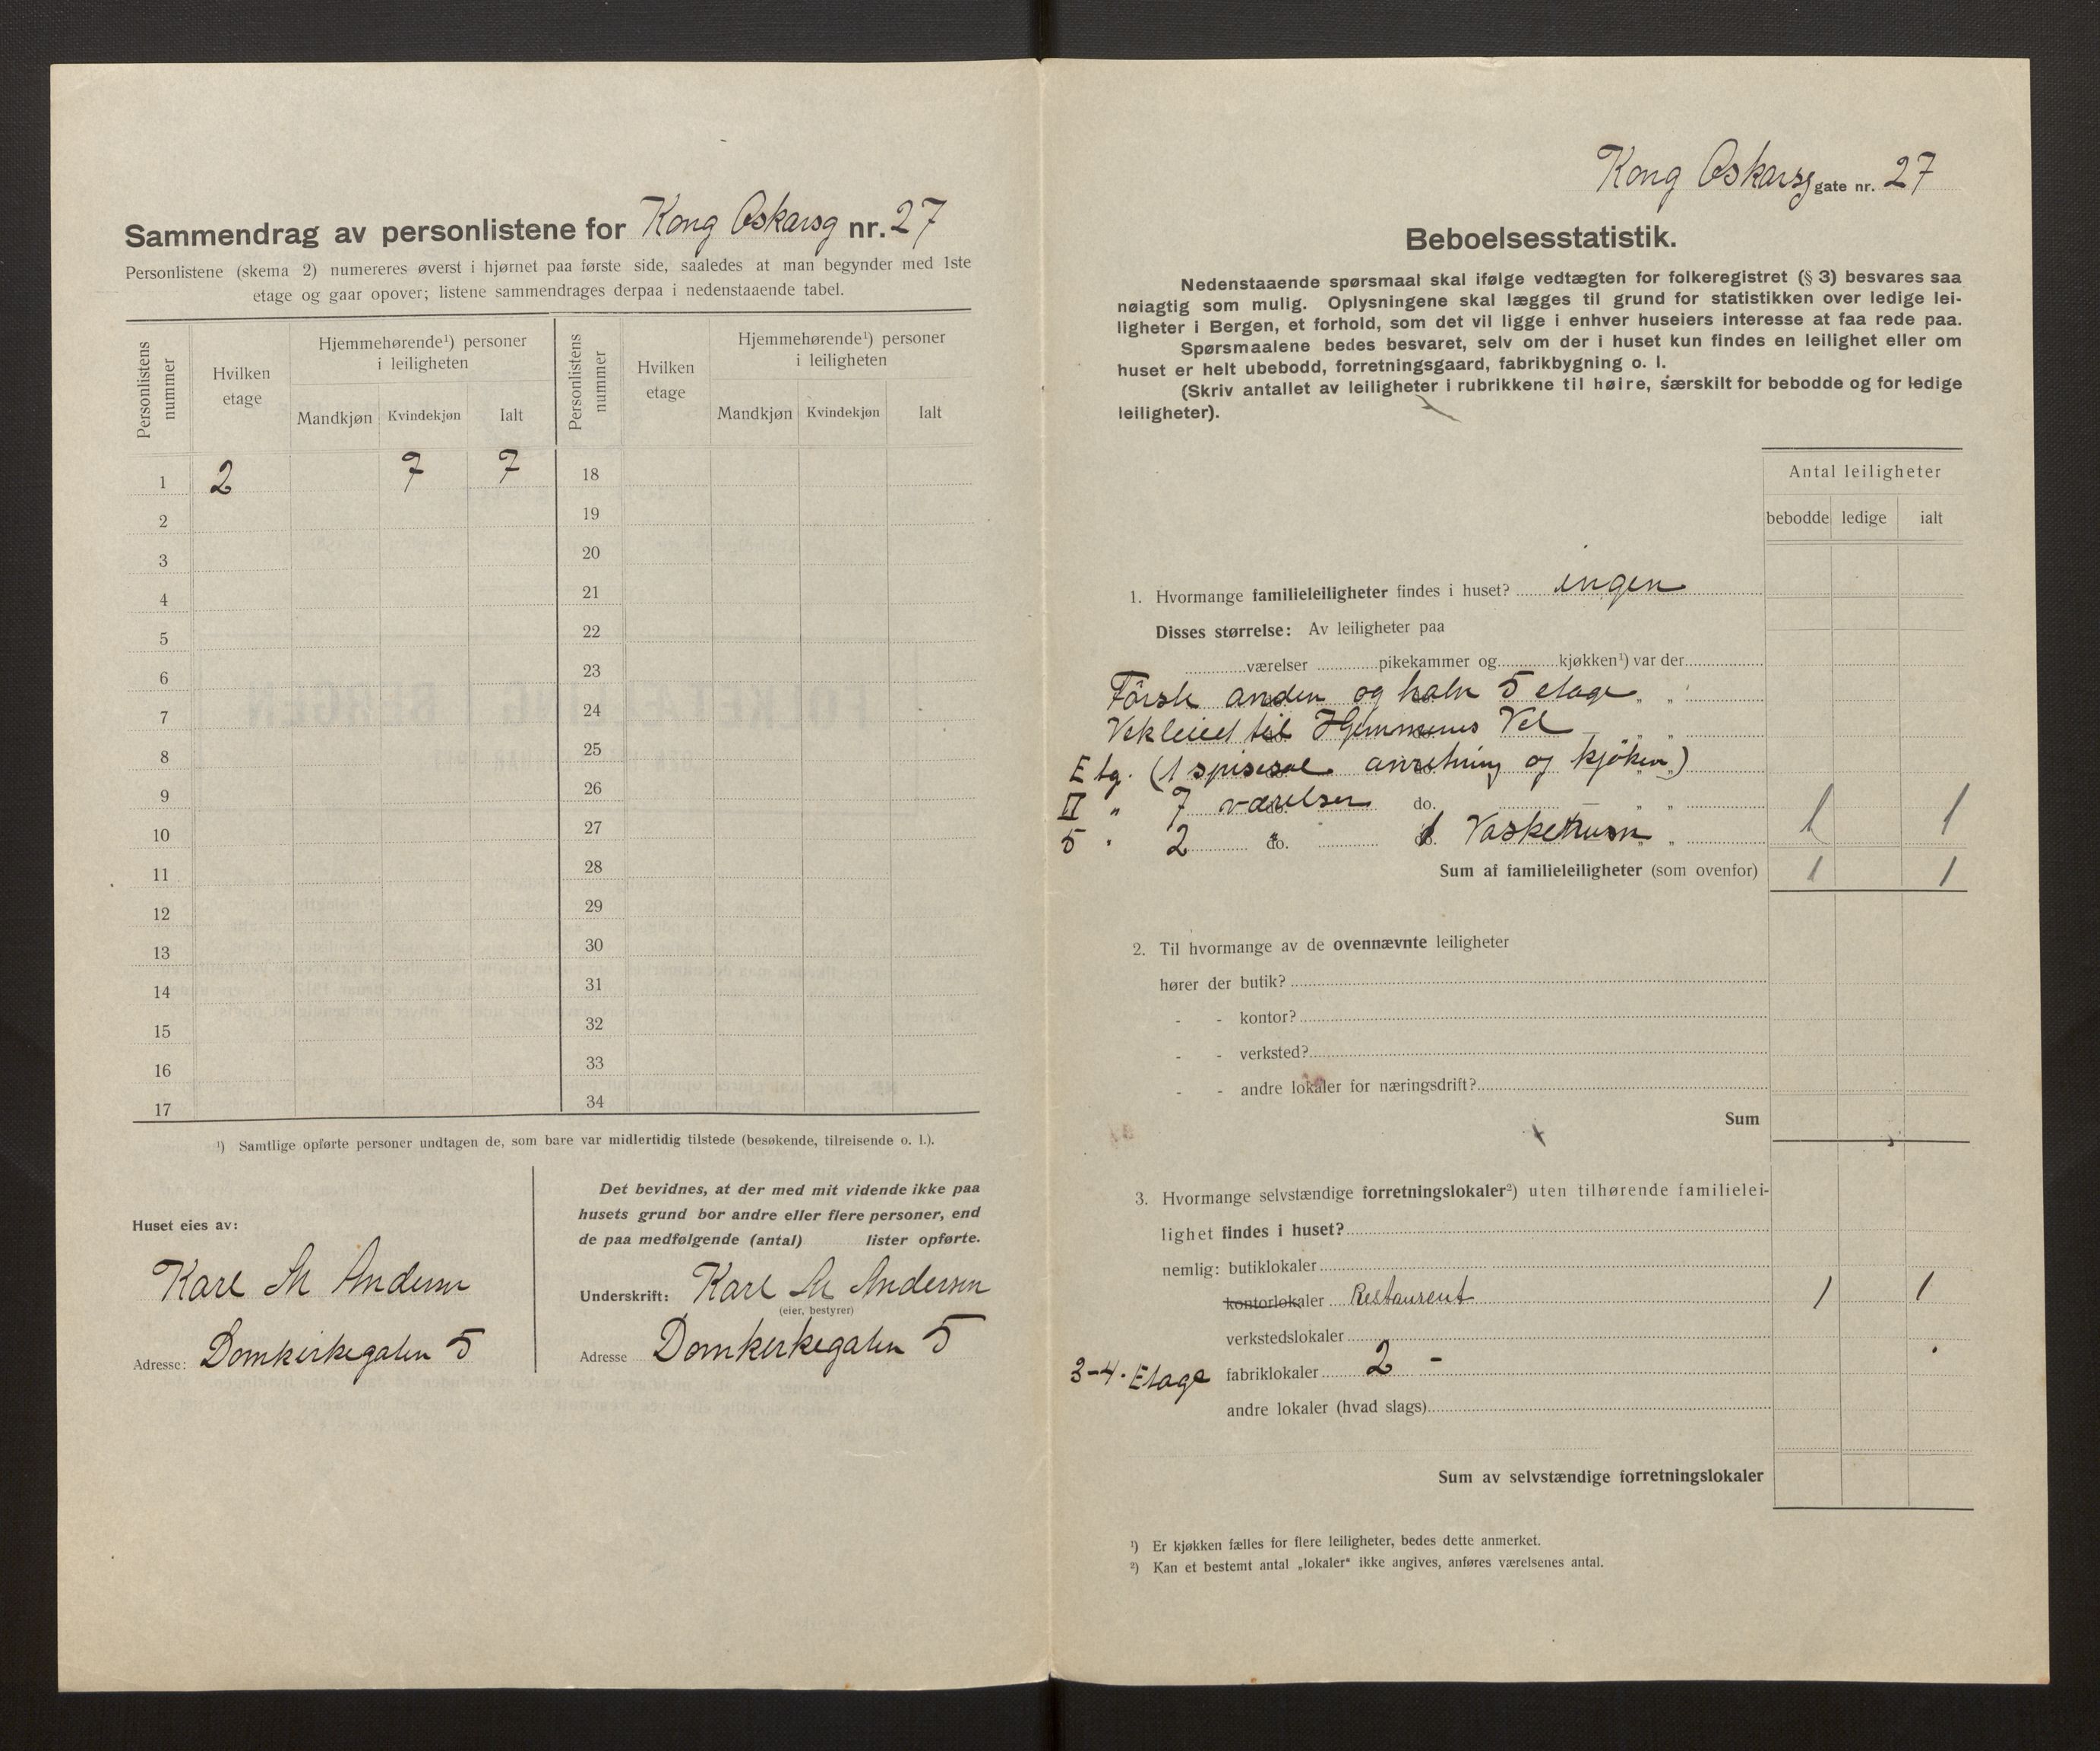 Sammendrag av personlistene for Kong Oskarsg nr. 27
Personlistene (skema 2) numereres øverst i hjørnet paa første side, saaledes at man begynder med 1ste
etage og gaar opover; listene sammendrages derpaa i nedenstaaende tabel.
Personlistens nummer
Hvilken etage
Hjemmehørende¹) personer i leiligheten
Mandkjøn Kvindekjøn Ialt
Personlistens nummer
Hvilken etage
Hjemmehørende¹) personer i leiligheten
Mandkjøn Kvindekjøn Ialt
1 2 7 7 18
2 19
3 20
4 21
5 22
6 23
7 24
8 25
9 26
10 27
11 28
12 29
13 30
14 31
15 32
16 33
17 34
¹) Samtlige opførte personer undtagen de, som bare var midlertidig tilstede (besøkende, tilreisende o. l.).
Huset eies av:
Karl M Andersen
Adresse: Domkirkegaten 5
Det bevidnes, at der med mit vidende ikke paa
husets grund bor andre eller flere personer, end
de paa medfølgende (antal) lister opførte.
Underskrift: Karl M Andersen
(eier, bestyrer)
Adresse Domkirkegaten 5
Kong Oskarsg gate nr. 27
Beboelsesstatistik.
Nedenstaaende spørsmaal skal ifølge vedtægten for folkeregistret (§ 3) besvares saa
nøiagtig som mulig. Oplysningene skal lægges til grund for statistikken over ledige lei-
ligheter i Bergen, et forhold, som det vil ligge i enhver huseiers interesse at faa rede paa.
Spørsmaalene bedes besvaret, selv om der i huset kun findes en leilighet eller om
huset er helt ubebodd, forretningsgaard, fabrikbygning o. l.
(Skriv antallet av leiligheter i rubrikkene til høire, særskilt for bebodde og for ledige
leiligheter).
Antal leiligheter
bebodde ledige ialt
1. Hvormange familieleiligheter findes i huset? ingen
Disses størrelse: Av leiligheter paa
værelser pikekammer og kjøkken¹) var der
Förste anden og halv 5 etage " "
Utleiet til Hjemmenes Vel " "
E tg. (1 spisesal anretning og kjöken)
II " 7 værelser do. " "
5 " 2 do. 1 Vaskerum " " 1 1
Sum af familieleiligheter (som ovenfor) 1 1
2. Til hvormange av de ovennævnte leiligheter
hører der butik?
- - kontor?
- - verksted?
- - andre lokaler for næringsdrift?
Sum
3. Hvormange selvstændige forretningslokaler²) uten tilhørende familielei-
lighet findes i huset?
nemlig: butiklokaler
kontorlokaler Restaurent 1 1
verkstedslokaler
3-4. Etage fabriklokaler 2 -
andre lokaler (hvad slags)
Sum av selvstændige forretningslokaler
¹) Er kjøkken fælles for flere leiligheter, bedes dette anmerket.
²) Kan et bestemt antal „lokaler“ ikke angives, anføres værelsenes antal.